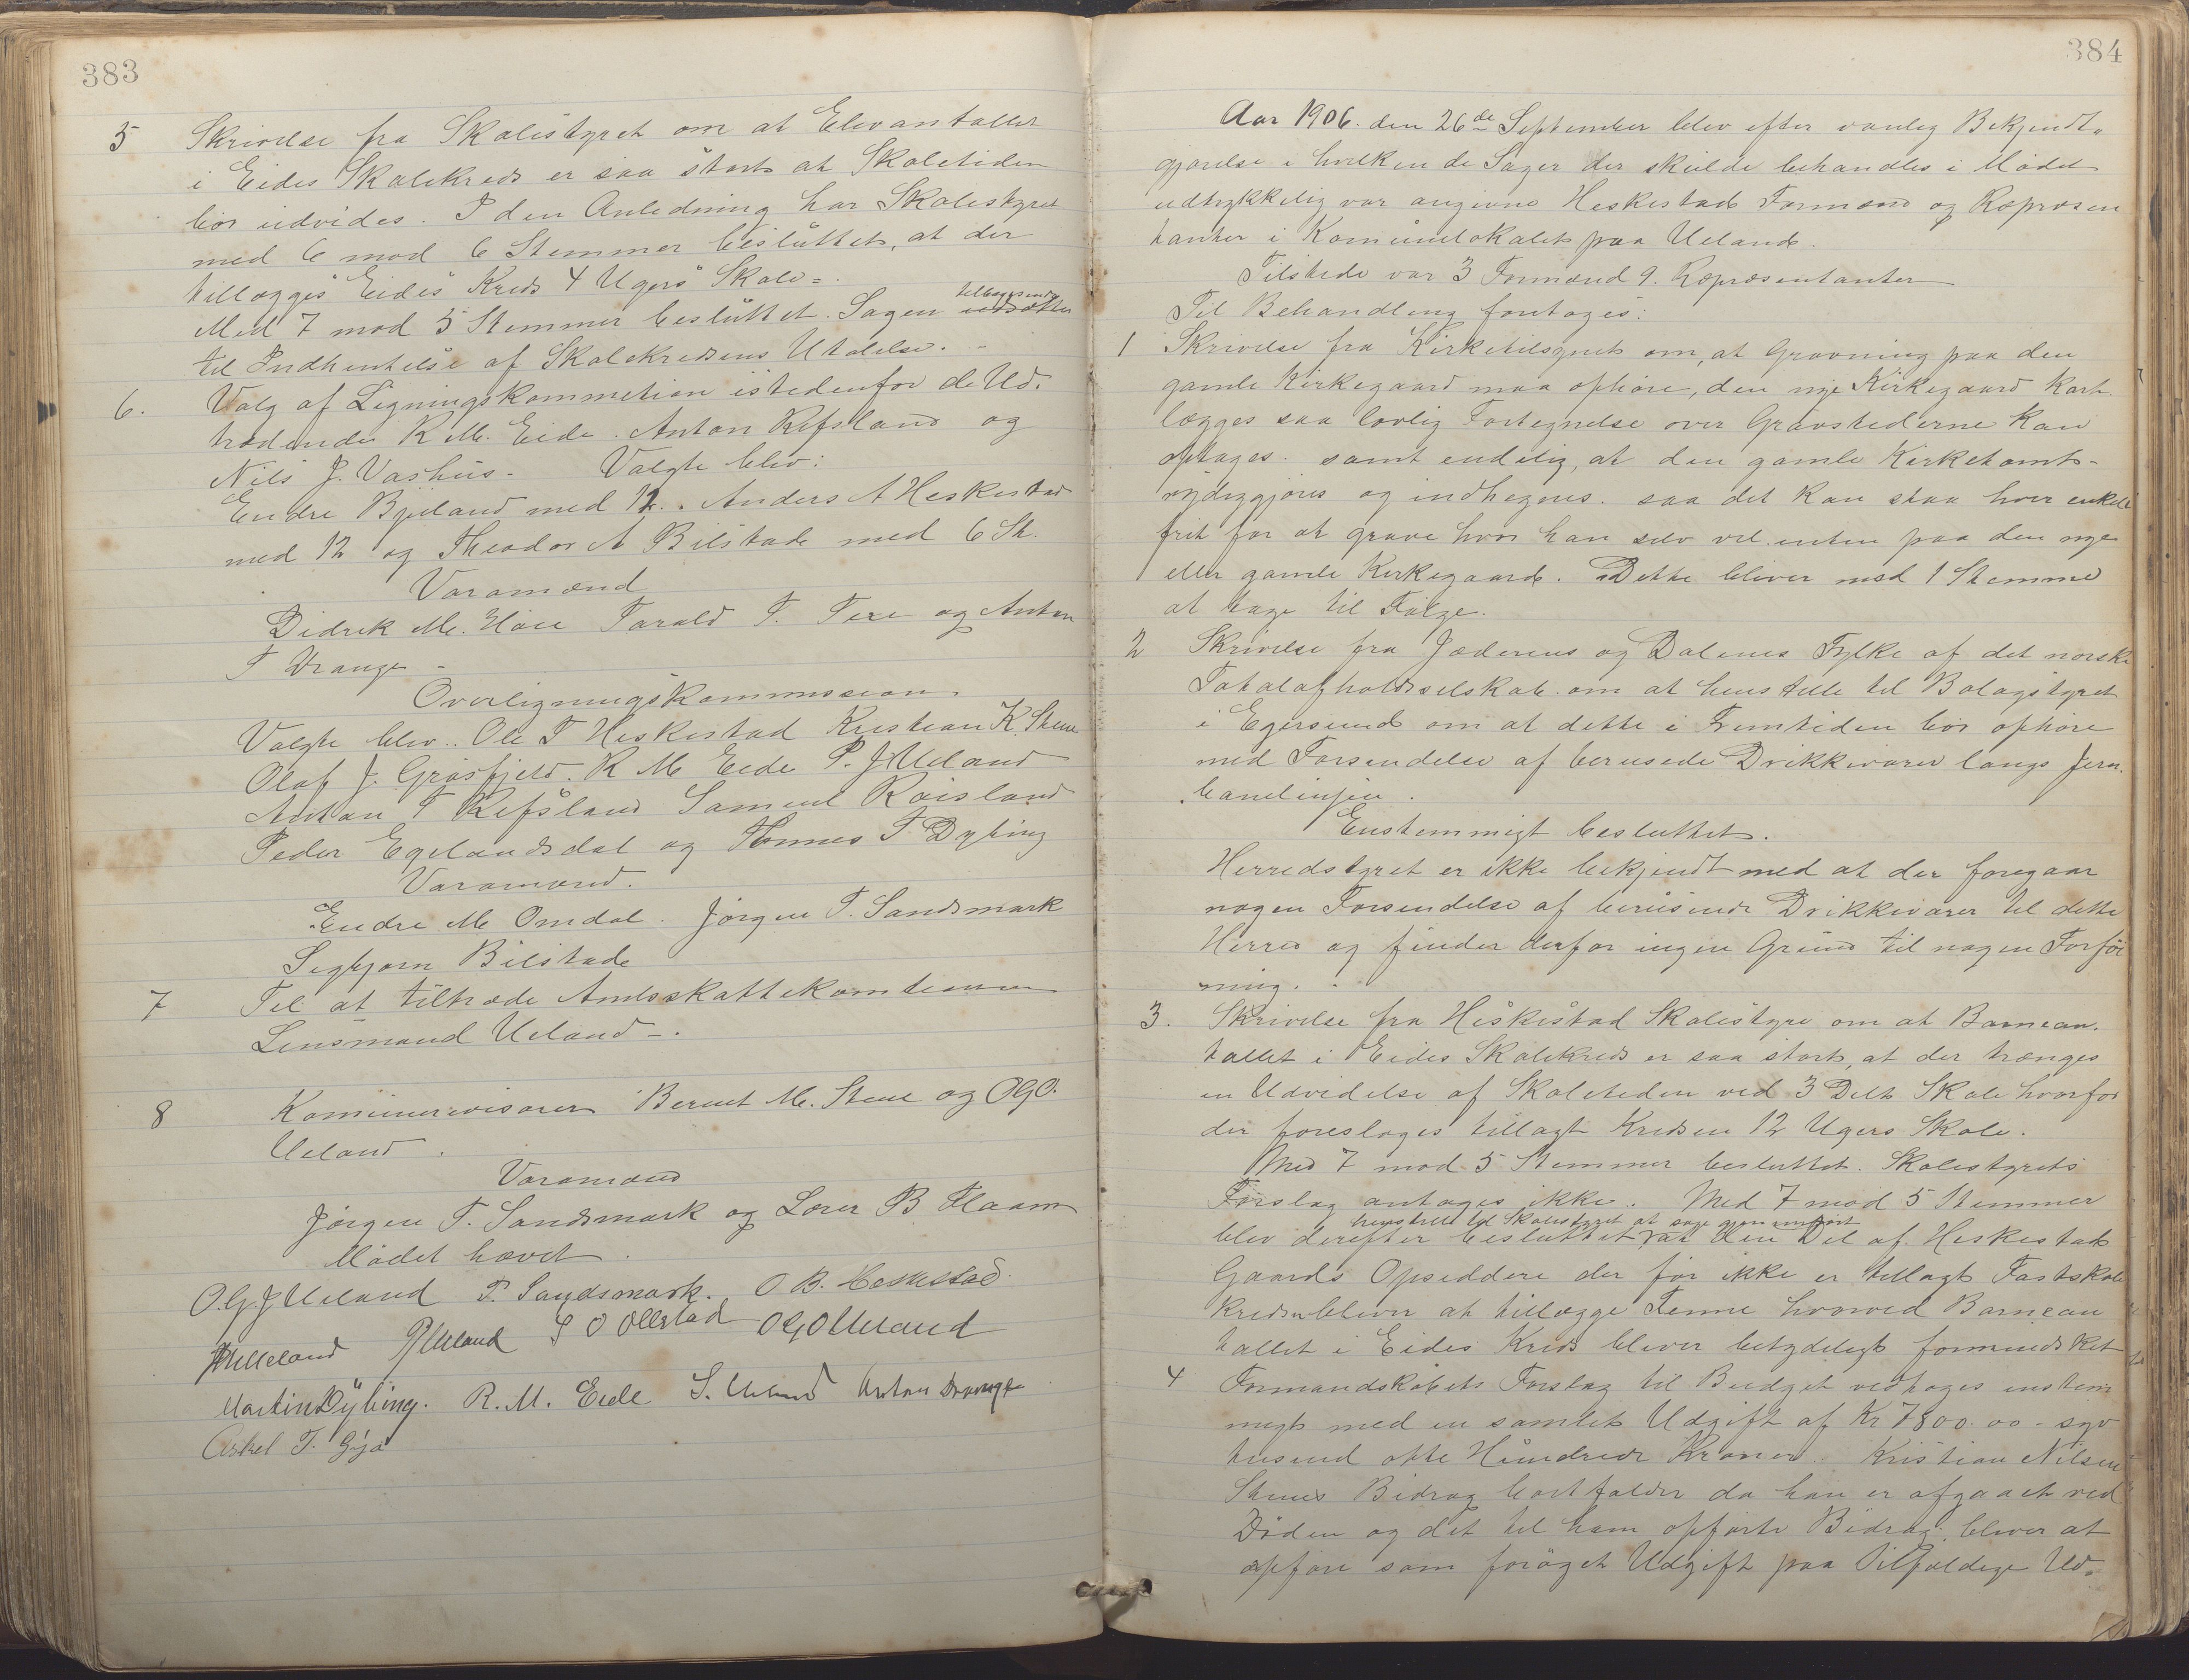 383
5 Skrivelse fra Skolestyret om at Elevantallet
i Eides Skolekreds er saa stort at Skoletiden
bør udvides. I den Anledning har Skolestyret
med 6 mod 6 Stemmer besluttet, at der
tillægges Eides Kreds 4 Ugers Skole.
Med 7 mod 5 Stemmer besluttet. Sagen udsættes tilbagesendes
til Indhentelse af Skolekredsens Utalelse.
6. Valg af Ligningskommetion istedenfor de Ud-
trædende R M. Eide. Anton Refsland og
Nils J. Vashus. Valgte blev:
Endre Bjuland med 12. Anders A Heskestad
med 12 og Theodor A Bilstad med 6 St.
Varamænd
Didrek M. Tarald T. og Anton
T Drange
Overligningskommission
Valgte blev.. Ole T Heskestad Kristian K. Stene
Olaf J. Grøsfjeld. R M Eide P. J Ueland
Anton T Refsland Samuel Røisland
Peder Egelandsdal og Tønnes T. Dybing
Varamænd.
Endre M Omdal. Jørgen T. Sandsmark
Sigbjørn Bilstad
7 Til at tiltræde Amtsskattekomtionen
Lensmand Ueland.
8 Komunerevisorer Berent M. Stene og OGO.
Ueland.
Varamænd
Jørgen T. Sandsmark og Lærer B Flaam
Mødet hævet.
O.G.J Ueland T. Sandsmark. O B. Heskestad.
PJUeland S O Ollestad OGOUeland
Martin Dybing. R. M. Eide S. Ueland Anton Drange
Askel T. Gya
384
Aar 1906. den 26de September blev efter vanlig Bekjendt-
gjørelse i hvilken de Sager der skulde behandles i Mødet
udtrykkelig var angivne Heskestad Formænd og Repræsen
tanter i Komunelokalet paa Ueland.
Tilstede var 3 Formænd 9. Repræsentanter
Til Behandling foretoges:
1 Skrivelse fra Kirketilsynet om, at Gravning paa den
gamle Kirkegaard maa ophøre, den nye Kirkegaard Kart-
lægges saa lovlig Fortegnelse over Gravstederne kan
optages. samt endelig, at den gamle Kirketomt-
rydiggjøres og indhegnes. saa det kan staa hver enkelt
frit for at grave hvor han selv vil. enten paa den nye
eller gamle Kirkegaard. Dette bliver mod 1 Stemme
at tage til Følge.
2 Skrivelse fra Jæderens og Dalenes Fylke af det norske
Totalafholdsselskab. om at henstille til Bolagstyret
i Egersund om at dette i Fremtiden bør ophøre
med Forsendelse af berusede Drikkevarer langs Jern-
banelinjen.
Enstemmigt besluttet.
Herredstyret er ikke bekjendt med at der foregaar
nogen Forsendelse af berusende Drikkevarer til dette
Herred og finder derfor ingen Grund til nogen Forføi
ning.
3. Skrivelse fra Heskestad Skolestyre om at Barnean-
tallet i Eides Skolekreds er saa stort, at der trænges
en Udvidelse af Skoletiden ved 3 Delt Skole hvorfor
der foreslages tillagt Kredsen 12 Ugers Skole.
Med 7 mod 5 Stemmer besluttet. Skolestyrets
Forslag antages ikke. Med 7 mod 5 Stemmer
henstille til Skolestyret at søge gjennemført
blev derefter besluttet at den Del af Heskestad
Gaards Opsiddere der før ikke er tillagt Fastskole
Kredsen bliver at tillægge Tenne hvorved Barnean
tallet i Eides Kreds bliver betydeligt formindsket
4 Formandskabets Forslag til Budget vedtages enstem
migt med en samlet Udgift af Kr 7800.00 - syv
tusend otte Hundrede Kroner. Kristian Nilsen
Stenes Bidrag bortfalder da han er afgaaet ved
Døden og det til ham opførte Bidrag. bliver at
opføre som forøget Udgift paa Tilfældige Ud-